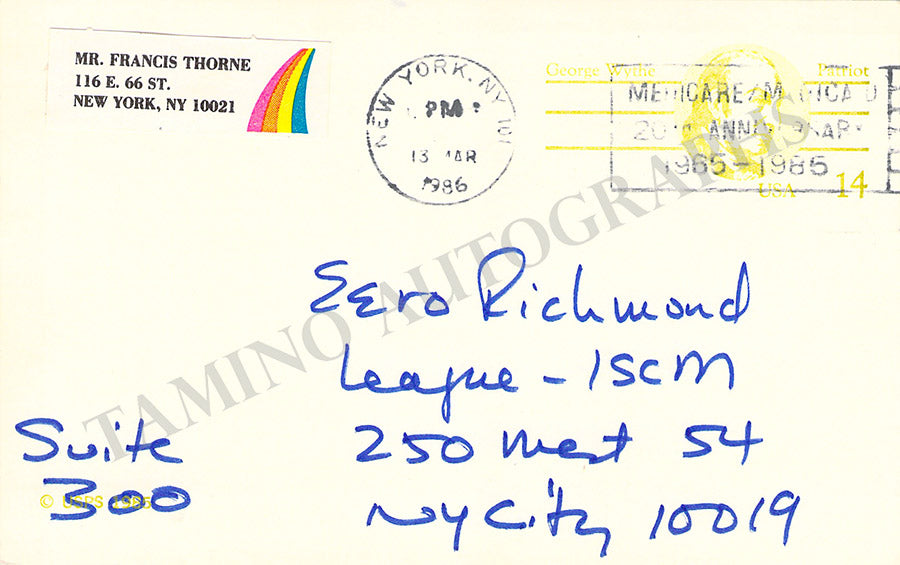 MR. FRANCIS THORNE
116 E. 66 ST.
NEW YORK, NY 10021
NEW YORK, NY 101
PM
13 MAR
1986
George Wythe Patriot
MEDICARE/MEDICAID
20TH ANNIVERSARY
1965-1985
USA 14
TAMINO AUTOGRAPHS
Eero Richmond
League - ISCM
250 West 54
NY City 10019
Suite
300
© USPS 1985